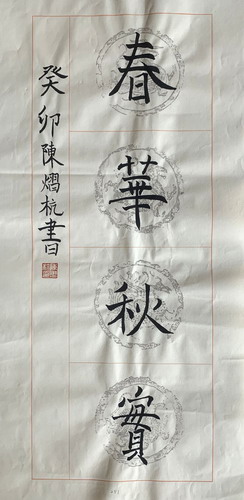 春華秋實
癸卯陳熠杭書